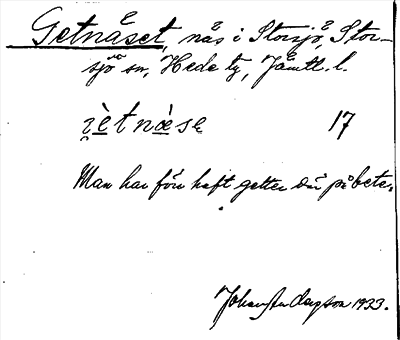 Getnäset, näs i Storsjö, Stor-
sjö sn, Hede tg, Jämtl. l.
17
Man har förr haft getter där på bete.
Johan Anderson 1933.